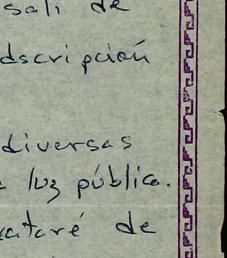 sali de
dscripción
diversas
luz pública.
taré de